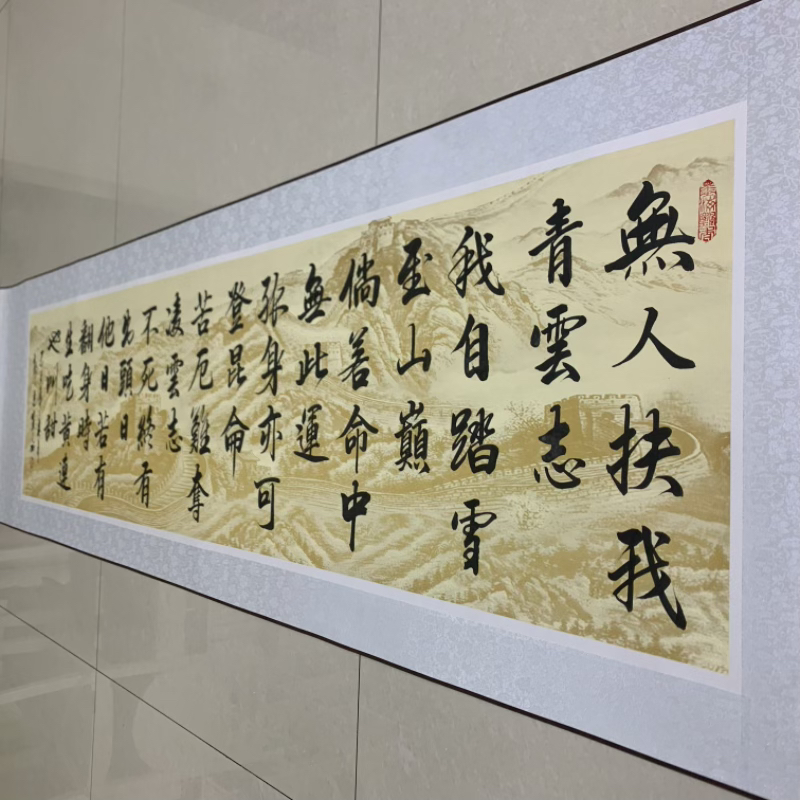 無人扶我
青雲志
我自踏雪
至山巔
倘若命中
無此運
孤身亦可
登昆侖
苦厄難奪
凌雲志
不死終有
出頭日
他日若有
翻身時
生吃黃連
也叫甜